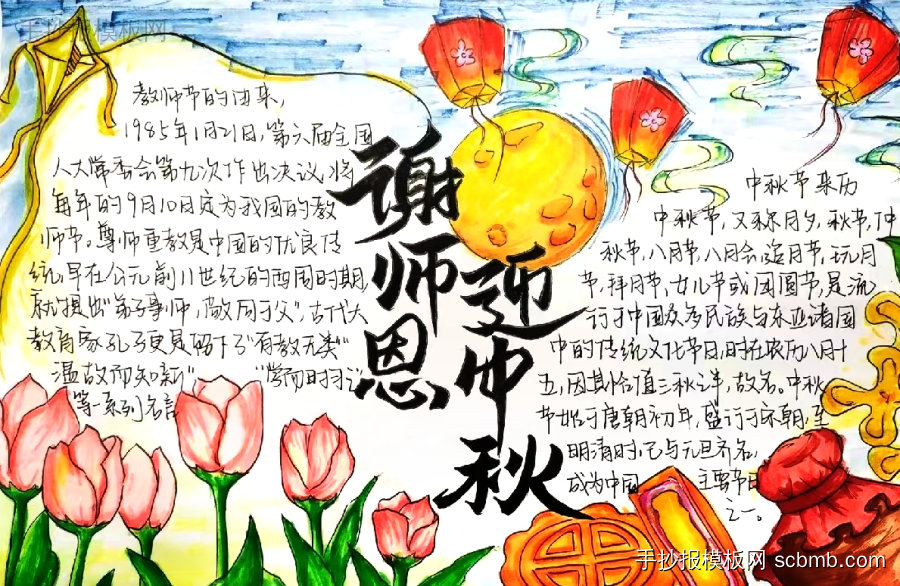 手抄报模板网
教师节的由来,
1985年1月21日,第六届全国
人大常委会第九次作出决议,将
每年的9月10日定为我国的教
师节。尊师重教是中国的优良传
统,早在公元前11世纪的西周时期,
就提出“弟子事师,敬同于父”,古代大
教育家孔子更是留下了“有教无类”
温故而知新” “学而时习之
等一系列名言
谢师恩
迎中秋
中秋节来历
中秋节,又称月夕,秋节,仲
秋节,八月节,八月会,追月节,玩月
节,拜月节,女儿节或团圆节,是流
行于中国众多民族与东亚诸国
中的传统文化节日,时在农历八月十
五,因其恰值三秋之半,故名。中秋
节始于唐朝初年,盛行于宋朝,至
明清时,已与元旦齐名,
成为中国 主要节日
之一。
手抄报模板网 scbmb.com